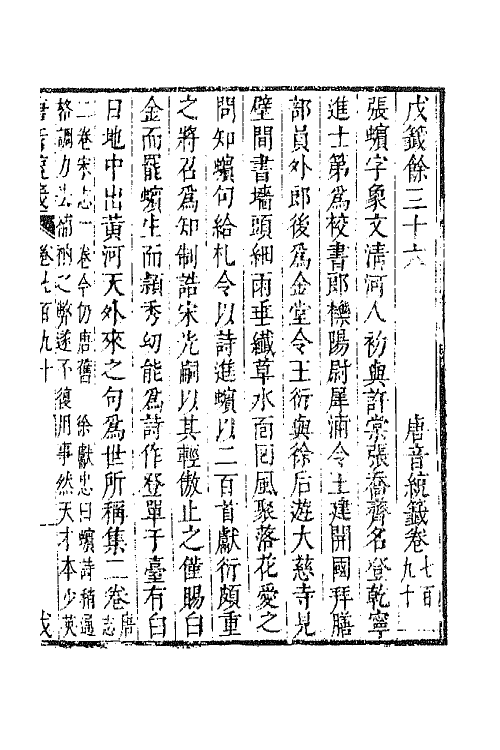 戊籖餘三十六　唐音統籖卷七百九十
張蠙字象文清河人初與許棠張喬齊名登乾寧
進士第爲校書郎櫟陽尉犀浦令王建開國拜膳
部員外郎後爲金堂令王衍與徐后遊大慈寺見
壁間書墻頭細雨垂纖草水面囘風聚落花愛之
問知蠙句給札令以詩進蠙以二百首獻衍頗重
之將召爲知制誥宋光嗣以其輕傲止之僅賜白
金而罷蠙生而穎秀幼能爲詩作登單于臺有白
日地中出黄河天外來之句爲世所稱集二卷唐志
二卷宋志一卷今仍唐舊　徐獻忠曰蠙詩稍過
格調力去補衲之弊遂不復用事然天才本少英
唐音統籖　卷七百九十　一　戊